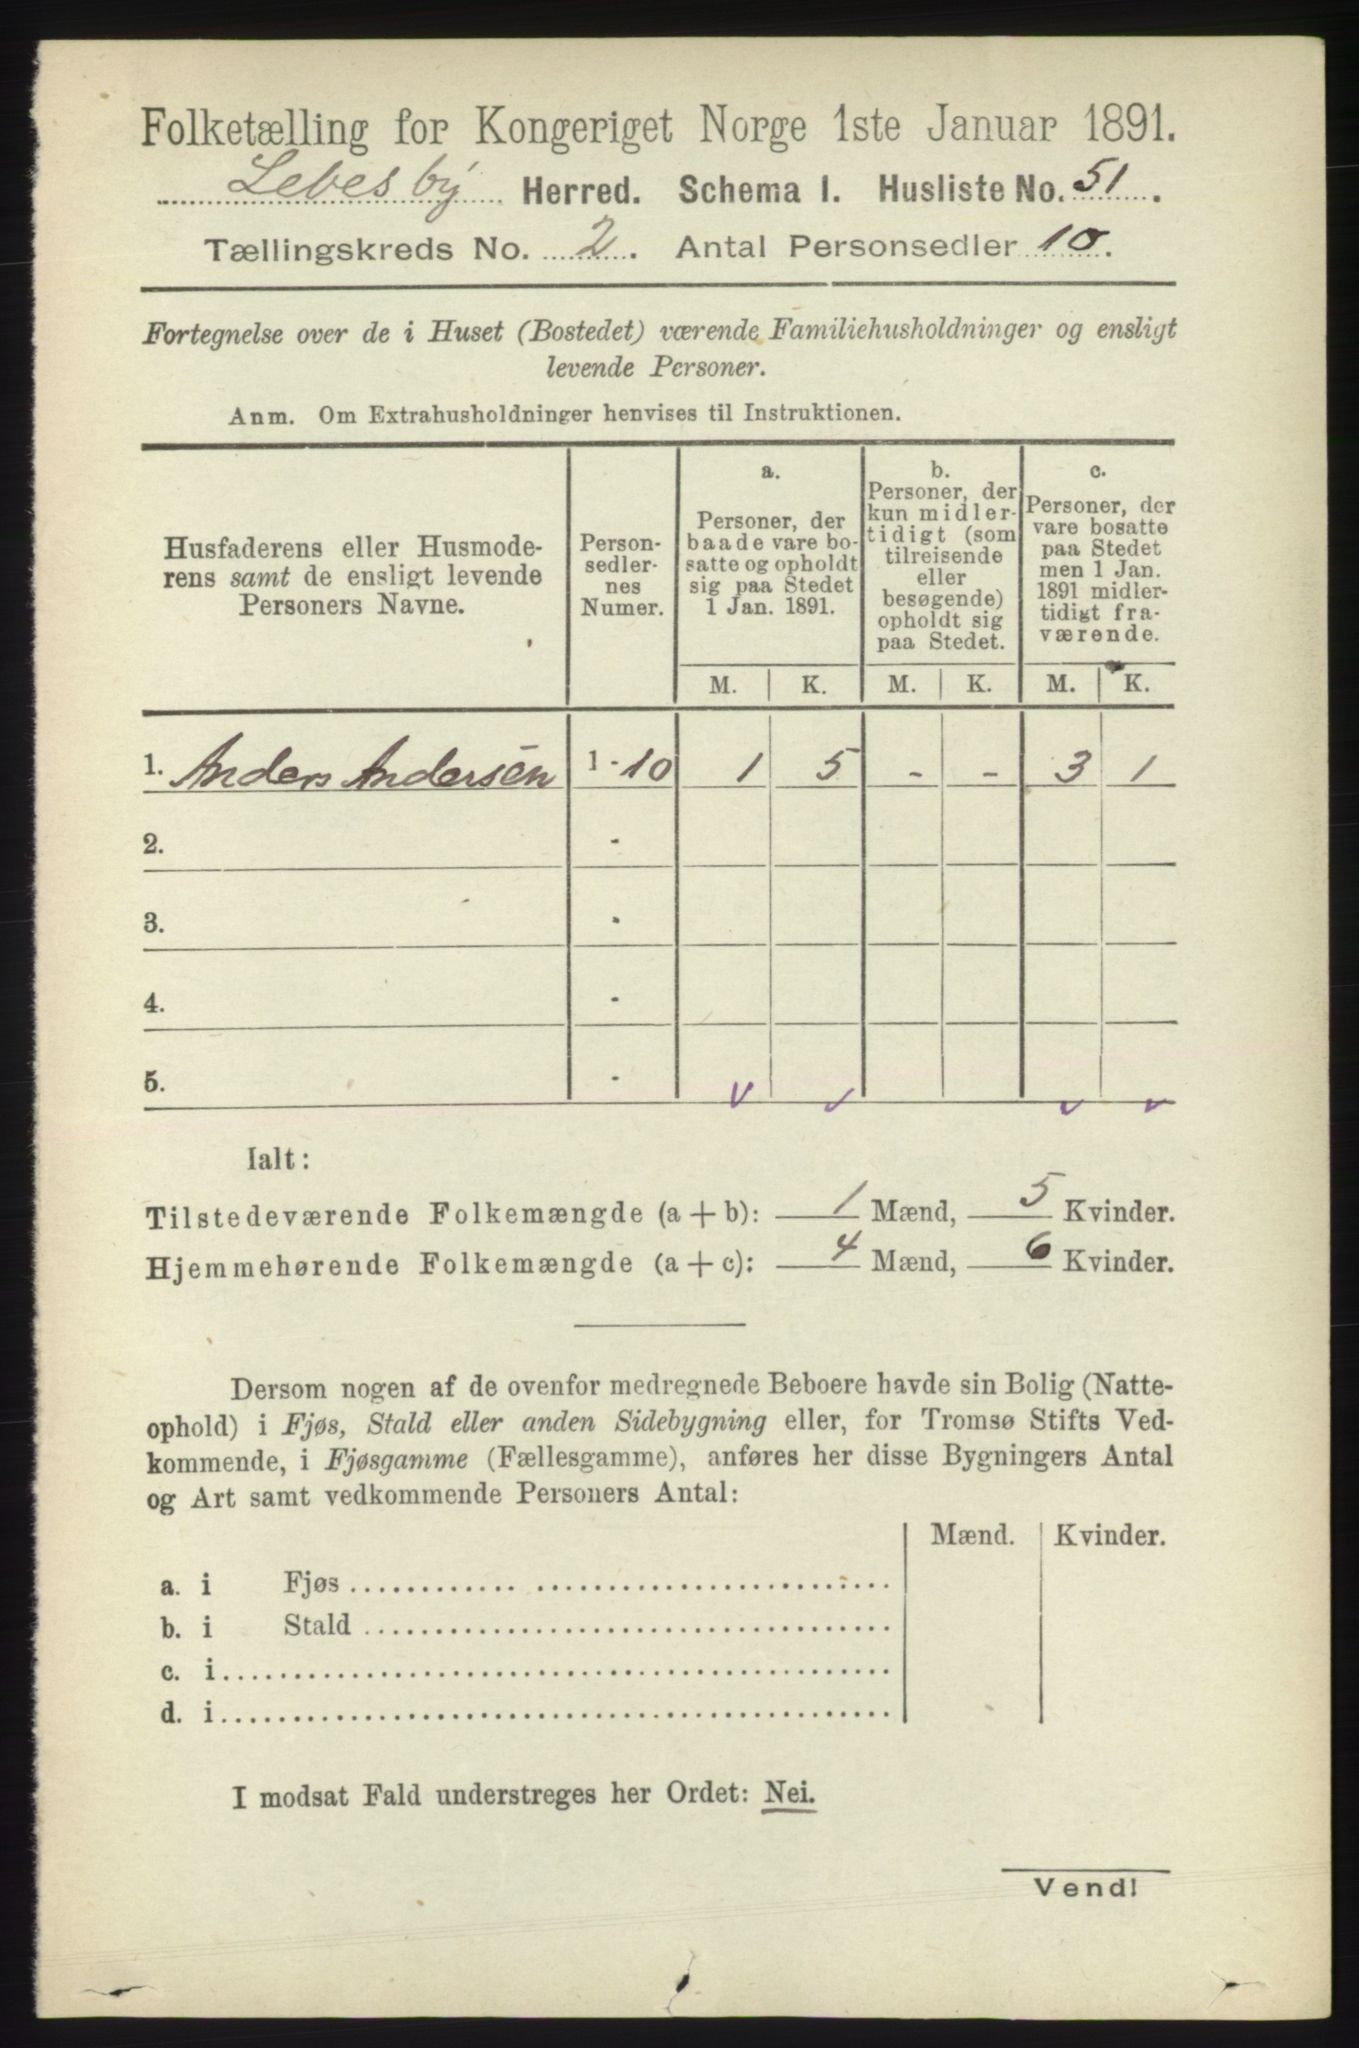 Folketælling for Kongeriget Norge 1ste Januar 1891.
Lebesby Herred. Schema I. Husliste No. 51.
Tællingskreds No. 2. Antal Personsedler 10.
Fortegnelse over de i Huset (Bostedet) værende Familiehusholdninger og ensligt
levende Personer.
Anm. Om Extrahusholdninger henvises til Instruktionen.
Husfaderens eller Husmode-
rens samt de ensligt levende
Personers Navne.
Person-
sedler-
nes
Numer.
a.
Personer, der
baade vare bo-
satte og opholdt
sig paa Stedet
1 Jan. 1891.
b.
Personer, der
kun midler-
tidigt (som
tilreisende
eller
besøgende)
opholdt sig
paa Stedet.
c.
Personer, der
vare bosatte
paa Stedet
men 1 Jan.
1891 midler-
tidigt fra-
værende.
M. K. M. K. M. K.
1. Anders Andersen 1-10 1 5 - - 3 1
2. -
3. -
4. -
5. -
Ialt:
Tilstedeværende Folkemængde (a + b): 1 Mænd, 5 Kvinder.
Hjemmehørende Folkemængde (a + c): 4 Mænd, 6 Kvinder.
Dersom nogen af de ovenfor medregnede Beboere havde sin Bolig (Natte-
ophold) i Fjøs, Stald eller anden Sidebygning eller, for Tromsø Stifts Ved-
kommende, i Fjøsgamme (Fællesgamme), anføres her disse Bygningers Antal
og Art samt vedkommende Personers Antal:
Mænd. Kvinder.
a. i Fjøs
b. i Stald
c. i
d. i
I modsat Fald understreges her Ordet: Nei.
Vend!